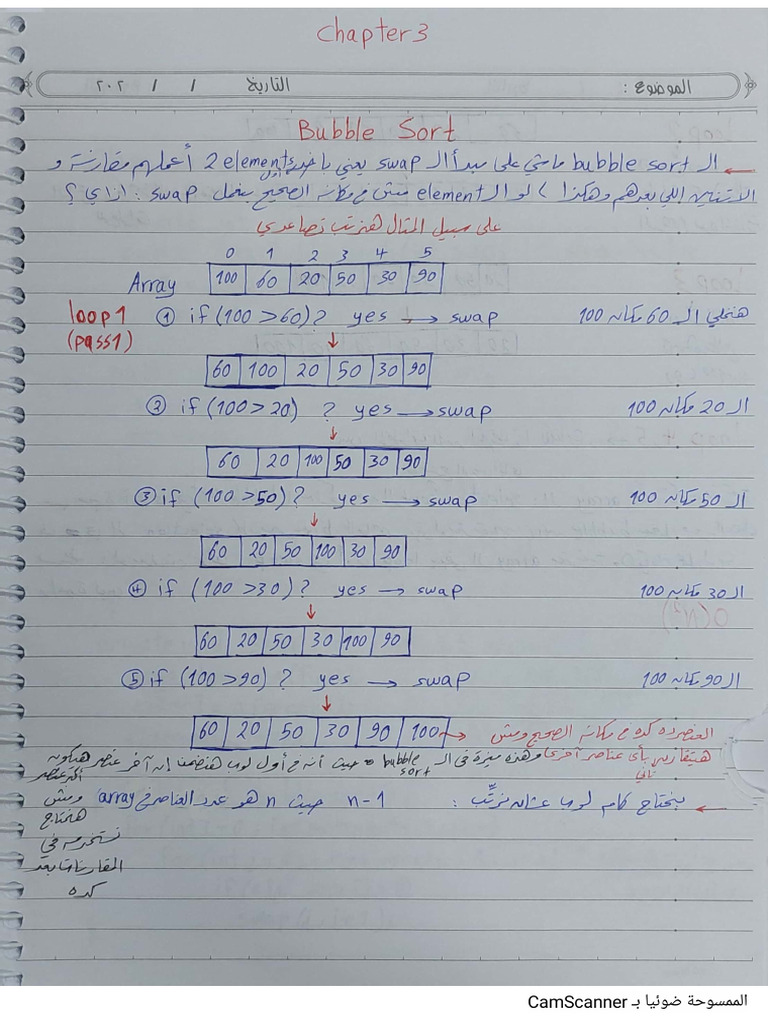 Chapter 3
الموضوع : التاريخ / / ٢٠٢
Bubble Sort
الـ bubble sort ماشي على مبدأ الـ swap يعني ياخد أول 2 elements أعملهم مقارنة و
الاتنين اللي بعدهم وهكذا ) لو الـ element مش في مكانه الصحيح بنعمل swap : ازاي ؟
على سبيل المثال هنرتب تصاعدي
0 1 2 3 4 5
Array 100 60 20 50 30 90
loop 1 ① if (100 > 60) ? yes → swap هنخلي الـ 60 مكانه 100
(pass1)
60 100 20 50 30 90
② if (100 > 20) ? yes → swap الـ 20 مكانه 100
60 20 100 50 30 90
③ if (100 > 50) ? yes → swap الـ 50 مكانه 100
60 20 50 100 30 90
④ if (100 > 30) ? yes → swap الـ 30 مكانه 100
60 20 50 30 100 90
⑤ if (100 > 90) ? yes → swap الـ 90 مكانه 100
60 20 50 30 90 100 → العنصر ده كده في مكانه الصحيح ومش
هيتقارن بأي عناصر أخرى تاني وهذه ميزة في الـ bubble sort حيث أنه في أول لوب هنضمن إن آخر عنصر هيكون
أكبر عنصر
ومش
هنحتاج
نستخدمه في
المقارنات بعد
كده
← بنحتاج كام لوب عشان نرتِّب : n-1 حيث n هو عدد العناصر في array
O(N²)
الممسوحة ضوئيا بـ CamScanner